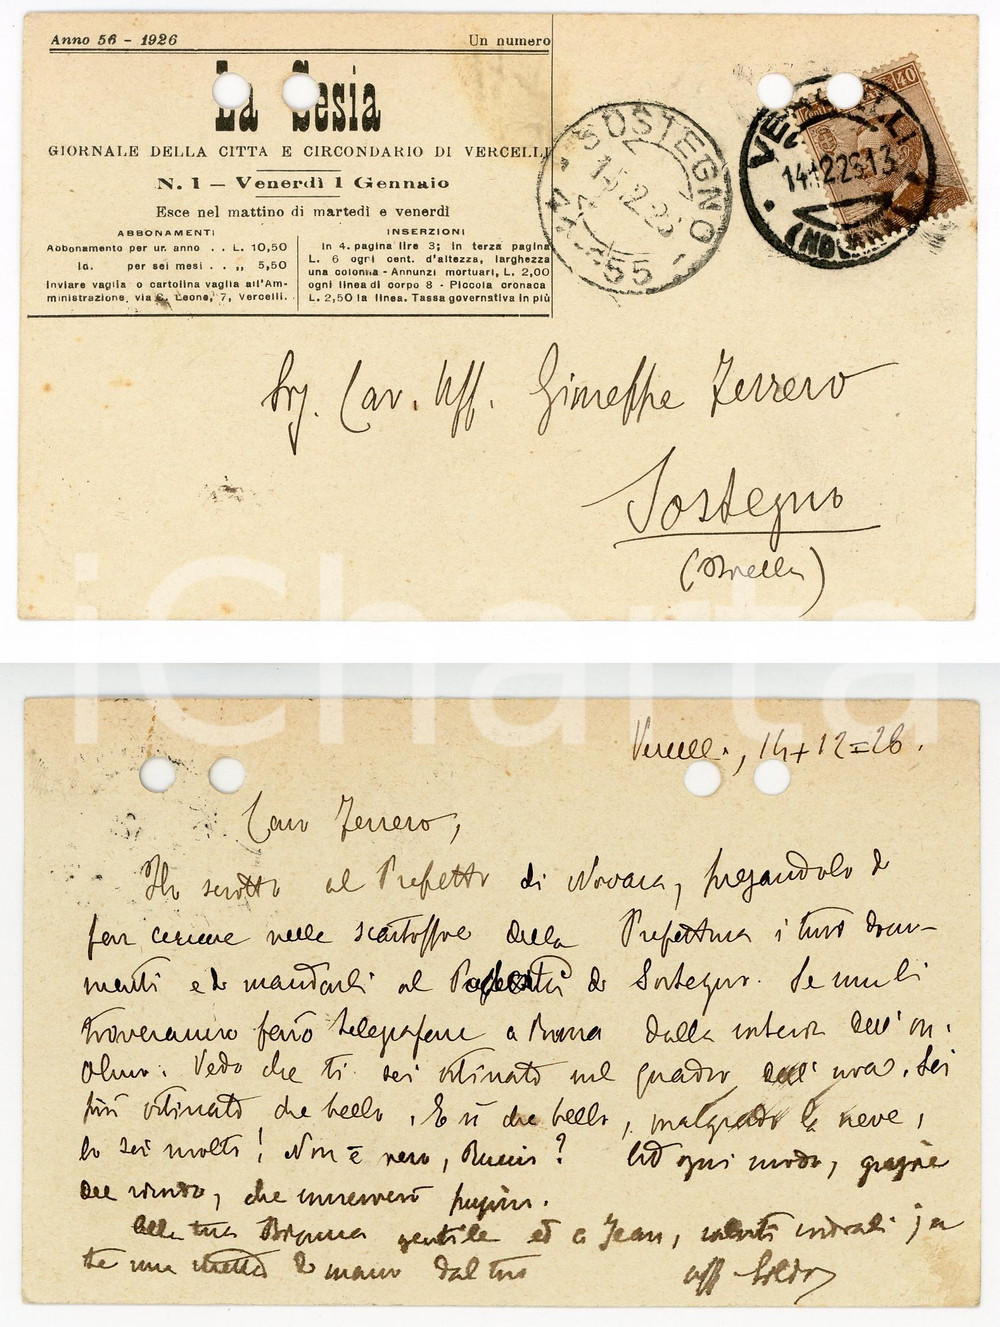 Anno 56 - 1926
Un numero
La Sesia
GIORNALE DELLA CITTA E CIRCONDARIO DI VERCELLI
N. 1 — Venerdì 1 Gennaio
Esce nel mattino di martedì e venerdì
ABBONAMENTI
Abbonamento per un anno . . L. 10,50
Id. per sei mesi . . „ 5,50
Inviare vaglia o cartolina vaglia all'Am-
ministrazione, via G. Leone, 7, Vercelli.
INSERZIONI
In 4. pagina lire 3; in terza pagina
L. 6 ogni cent. d'altezza, larghezza
una colonna - Annunzi mortuari, L. 2,00
ogni linea di corpo 8 - Piccola cronaca
L. 2,50 la linea. Tassa governativa in più
SOSTEGNO
VERCELLI
(NOVARA)
40
Sig. Cav. Uff. Giuseppe Ferrero
Sostegno
(Biella)
iCharta
Vercelli, 14=12=26.
Caro Ferrero,
Ho scritto al Prefetto di Novara, pregandolo di
far cercare nelle scartoffie della Prefettura i tuoi docu-
menti e di mandarli al di Sostegno. Se non li
troveranno farò telegrafare a Roma dalla
Vedo che ti sei ostinato nel quadro dell'uva. Sei
più ostinato che bello. E sì che bello, malgrado la neve,
lo sei molto! Non è vero, ? Ad ogni modo, grazie
che
Alla tua gentile ed a Jean, saluti cordiali; a
te una stretta di mano dal tuo
aff